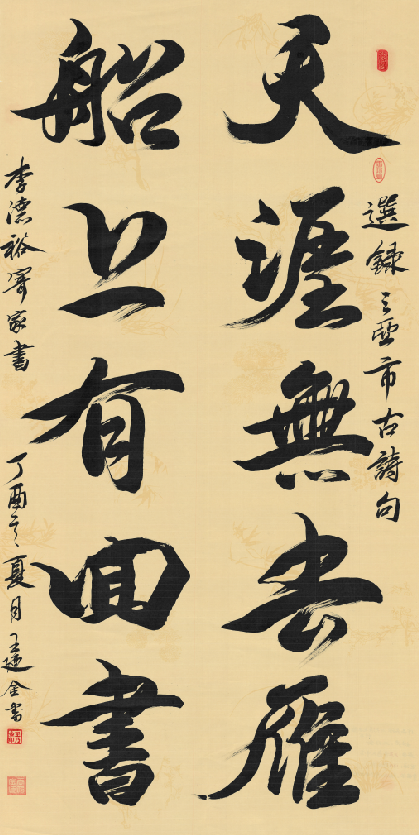 選錄三亞市古詩句
天涯無去雁
船上有回書
李德裕寄家書
丁酉之夏月王建全書